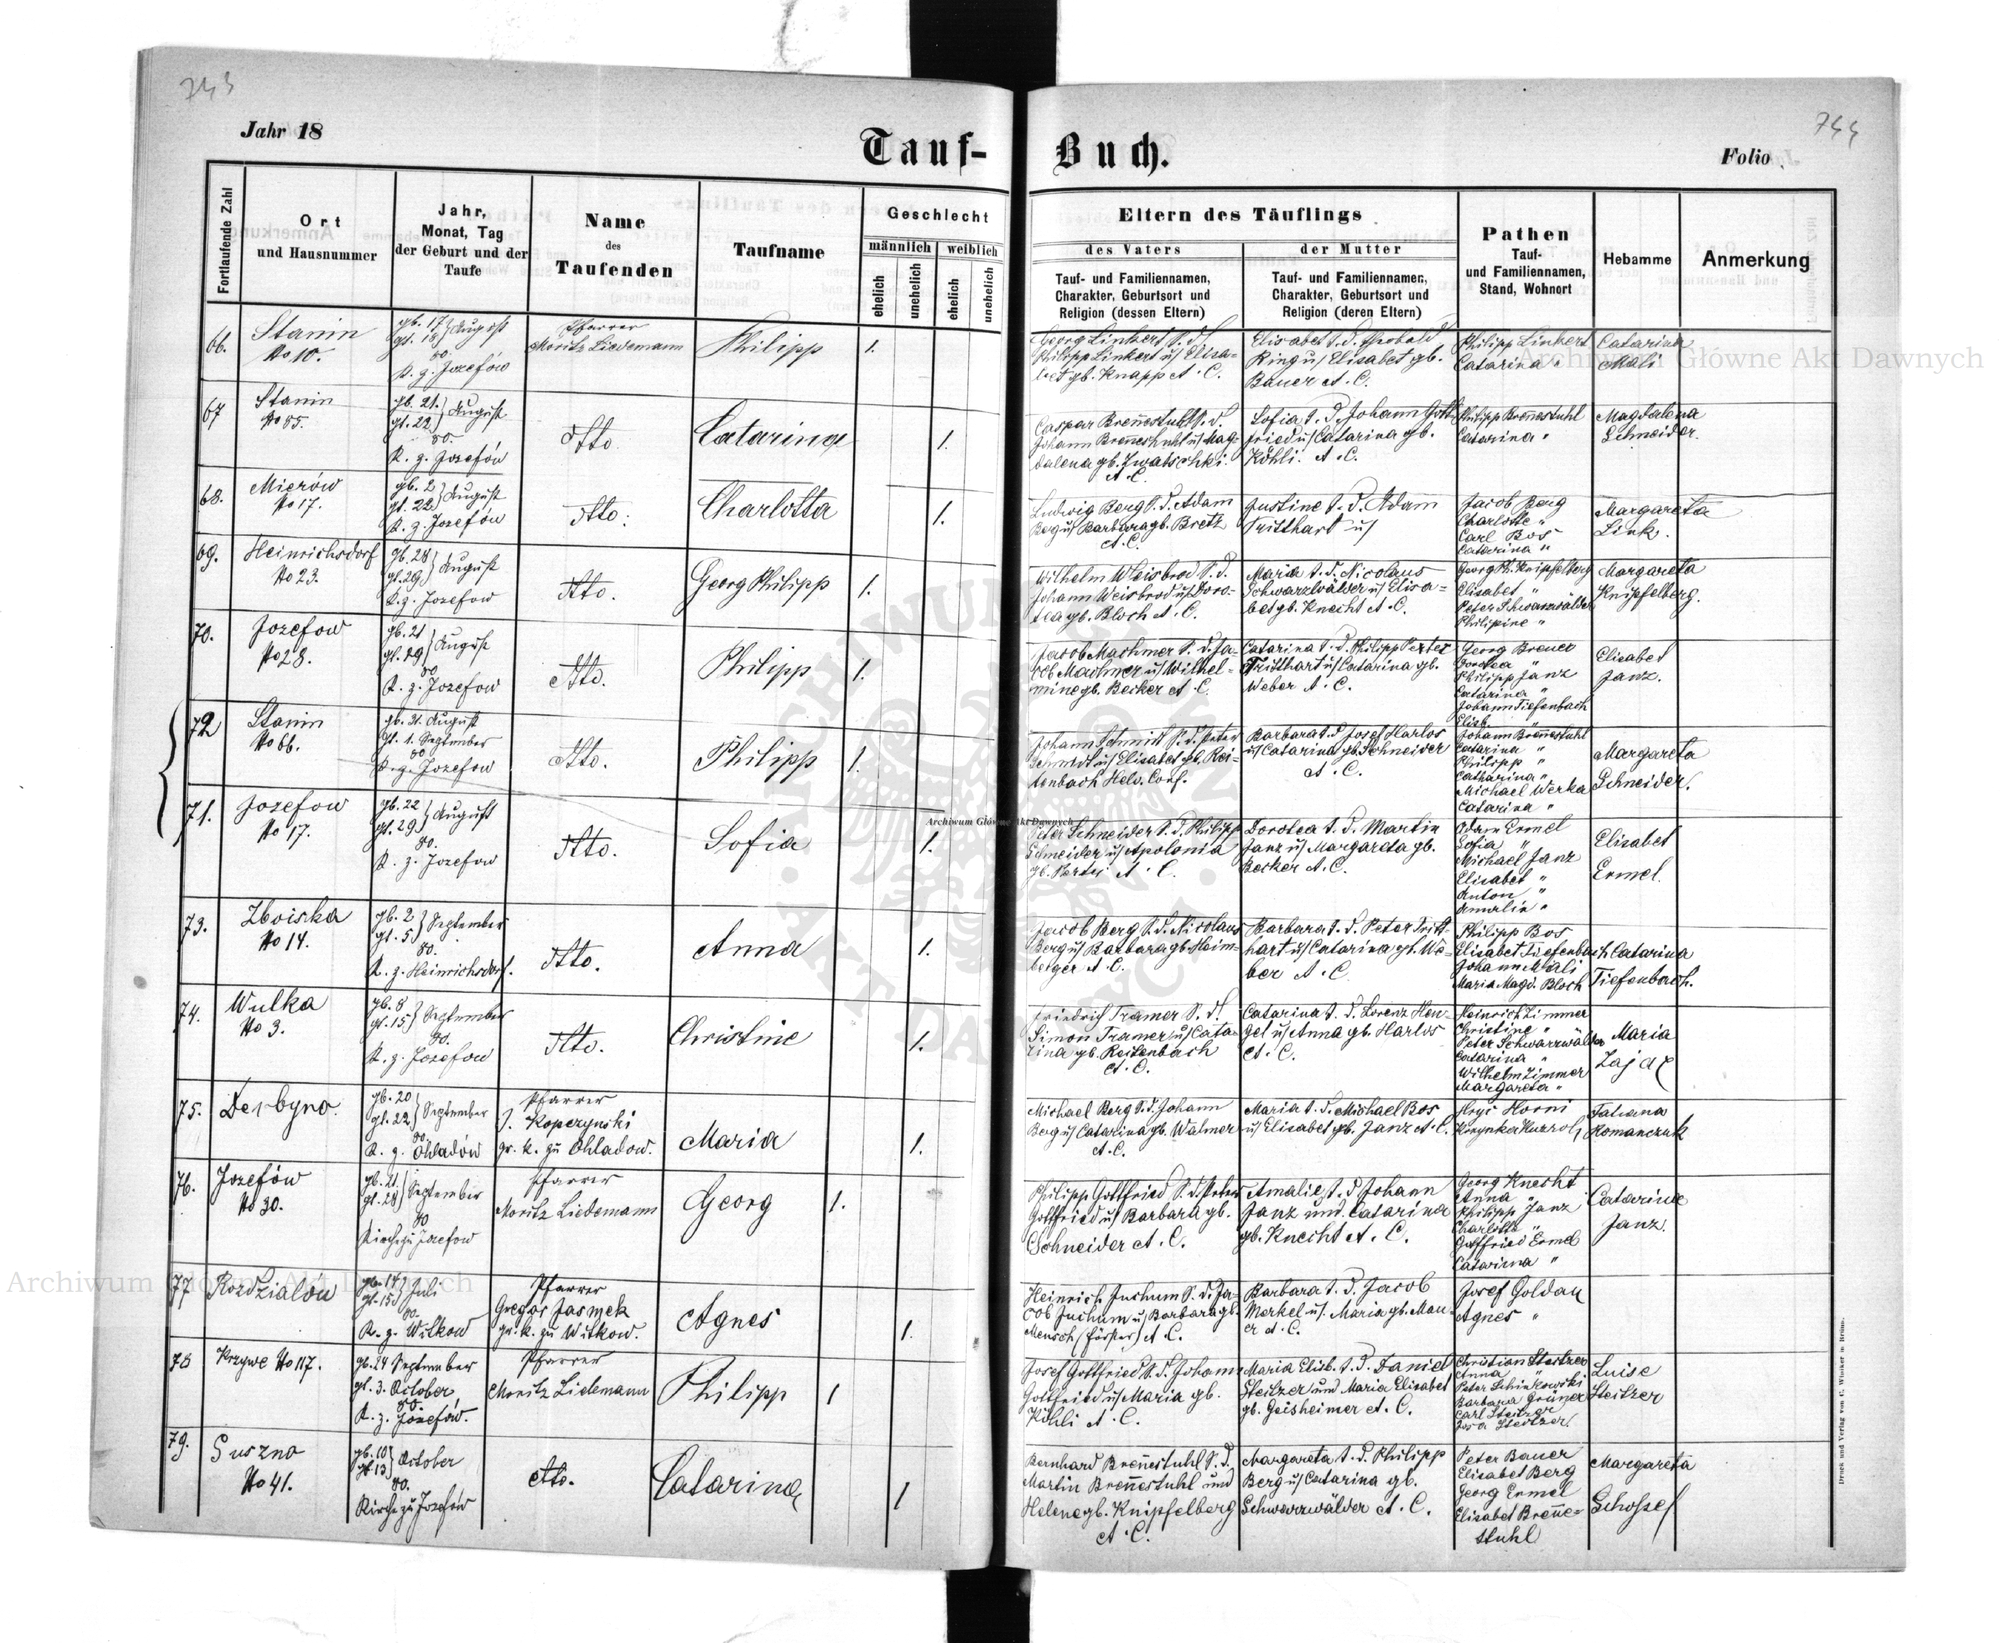 743
744
Jahr 18
Tauf-Buch.
Folio
Fortlaufende Zahl
Ort
und Hausnummer
Jahr,
Monat, Tag
der Geburt und der
Taufe
Name
des
Taufenden
Taufname
Geschlecht
männlich
weiblich
ehelich
unehelich
ehelich
unehelich
Eltern des Täuflings
des Vaters
Tauf- und Familiennamen,
Charakter, Geburtsort und
Religion (dessen Eltern)
der Mutter
Tauf- und Familiennamen,
Charakter, Geburtsort und
Religion (deren Eltern)
Pathen
Tauf-
und Familiennamen,
Stand, Wohnort
Hebamme
Anmerkung
66.
Stanin
No 10.
gb. 17
gt. 18
August
80.
K. z. Jozefów
Pfarrer
Moritz Liedemann
Philipp
1.
Georg Linkert S. d.
Philipp Linkert u/ Elisa-
bet gb. Knapp A. C.
Elisabet t. d.
Ring u/ Elisabet gb.
Bauer A. C.
Philipp Linkert
Catarina "
Catarina
Mali
67
Stanin
No 85.
gb. 21.
gt. 22
August
80.
K. z. Jozefów
dtto.
Catarina
1.
Caspar Brennestuhl S. d.
Johann Brennestuhl u/ Mag-
dalena gb.
A. C.
Sofia t. d. Johann Gott-
fried u/ Catarina gb.
Köhli. A. C.
Philipp Brennestuhl
Catarina "
Magdalena
Schneider.
68.
Mierów
No 17.
gb. 2
gt. 22
August
K. z. Jozefów
dtto.
Charlotta
1.
Ludwig Berg S. d. Adam
Berg u/ Barbara gb. Bretz
A. C.
Justine t. d. Adam
Tritthart u/
Jacob Berg
Charlotte "
Carl Bos
Catarina "
Margareta
Link.
69.
Heinrichsdorf
No 23.
gb. 28
gt. 29
August
K. z. Jozefow
dtto.
Georg Philipp
1.
Wilhelm Weisbrod S. d.
Johann Weisbrod u/ Doro-
tea gb. Bloch A. C.
Maria t. d. Nicolaus
Schwarzwälder u/ Elisa-
bet gb. Knecht A. C.
Georg Ph. Knipfelberg
Elisabet "
Peter Schwarzwälder
Philipine "
Margareta
Knipfelberg.
70.
Jozefow
No 28.
gb. 21
gt. 29
August
80
K. z. Jozefow
dtto.
Philipp
1.
Jacob Machmer S. d. Ja-
cob Machmer u/ Wilhel-
mine gb. Becker A. C.
Catarina t. d. Philipp Peter
Tritthart u/ Catarina gb.
Weber A. C.
Georg Breuer
Dorotea "
Philipp Janz
Catarina "
Johann Tiefenbach
Elisb.
Elisabet
Janz.
72
Stanin
No 66.
gb. 21. August
gt. 1. September
80
K. z. Jozefow
dtto.
Philipp
1.
Johann Schmidt S. d. Peter
Schmidt u/ Elisabet gb. Rei-
tenbach Helv. Conf.
Barbara t. d. Josef Harlos
u/ Catarina gb. Schneider
A. C.
Johann Brennestuhl
Catarina "
Philipp "
Catharina "
Michael Werka
Catarina "
Margareta
Schneider.
71.
Jozefow
No 17.
gb. 22
gt. 29
August
80.
K. z. Jozefow
dtto.
Sofia
1.
Peter Schneider S. d. Philipp
Schneider u/ Apolonia
A. C.
Dorotea t. d. Martin
Janz u/ Margareta gb.
Becker A. C.
Adam Ermel
Sofia "
Michael Janz
Elisabet "
Anton "
Amalia "
Elisabet
Ermel.
73.
Zboiska
No 14.
gb. 2
gt. 5
September
80.
K. z. Heinrichsdorf.
dtto.
Anna
1.
Jacob Berg S. d. Nicolaus
Berg u/ Barbara gb. Heim-
berger A. C.
Barbara t. d. Peter Tritt-
hart u/ Catarina gb. We-
ber A. C.
Philipp Bos
Elisabet Tiefenbach
Johann Mali
Maria Magd. Bloch
Catarina
Tiefenbach.
74.
Wulka
No 3.
gb. 8
gt. 15
September
80.
K. z. Jozefow
dtto.
Christine
1.
Friedrich Tramer S. d.
Simon Tramer u/ Cata-
rina gb. Reitenbach
A. C.
Catarina t. d. Lorenz Hen-
gel u/ Anna gb. Harlos
A. C.
Heinrich Zimmer
Christine "
Peter Schwarzwälder
Catarina "
Wilhelm Zimmer
Margareta "
Maria
Zajac
75.
Derbyna.
gb. 20
gt. 22
September
80
K. z. Ohladów
Pfarrer
J. Kopczynski
gr. k. zu Ohladow.
Maria
1.
Michael Berg S. d. Johann
Berg u/ Catarina gb. Walmer
A. C.
Maria t. d. Michael Bos
u/ Elisabet gb. Janz A. C.
Hryc Horni
Tatiana
Romanczuk
76.
Jozefów
No 30.
gb. 21.
gt. 28
September
80
Kirche zu Jozefow
Pfarrer
Moritz Liedemann
Georg
1.
Philipp Gottfried S. d. Peter
Gottfried u/ Barbara gb.
Schneider A. C.
Amalie t. d. Johann
Janz und Catarina
gb. Knecht A. C.
Georg Knecht
Anna "
Philipp Janz
Charlotte "
Gottfried Ermel
Catarina "
Catarine
Janz.
77
Rozdzialów
gb. 14
gt. 15
Juli
80.
K. z. Witkow
Pfarrer
Gregor Jasmek
gr. k. zu Witkow.
Agnes
1.
Heinrich Juchum S. d. Ja-
cob Juchum u/ Barbara gb.
Mensch (Förster) A. C.
Barbara t. d. Jacob
Merkel u/. Maria gb. Mau-
er A. C.
Josef Goldau
Agnes "
78
Krzywe No 117.
gb. 24 September
gt. 3. October
80.
K. z. Jozefów.
Pfarrer
Moritz Liedemann
Philipp
1
Josef Gottfried S. d. Johann
Gottfried u/ Maria gb.
Köhli A. C.
Maria Elisb. t. d. Daniel
Steitzer und Maria Elisabet
gb. Geisheimer A. C.
Christian Steitzer
Anna "
Peter
Barbara Grüner
Carl Steitzer
Steitzer
Luise
Steitzer
79.
Suszno
No 41.
gb. 10
gt. 13
October
80.
Kirche zu Jozefow
dtto.
Catarina
1
Bernhard Brennestuhl S. d.
Martin Brennestuhl und
Helene gb. Knipfelberg
A. C.
Margareta t. d. Philipp
Berg u/ Catarina gb.
Schwarzwälder A. C.
Peter Bauer
Elisabet Berg
Georg Ermel
Elisabet Brenne-
stuhl
Margareta
Schossel
Druck und Verlag von C. Winiker in Brünn.
Archiwum Główne Akt Dawnych
Archiwum Główne Akt Dawnych
Archiwum Główne Akt Dawnych
ARCHIWUM GŁÓWNE AKT DAWNYCH